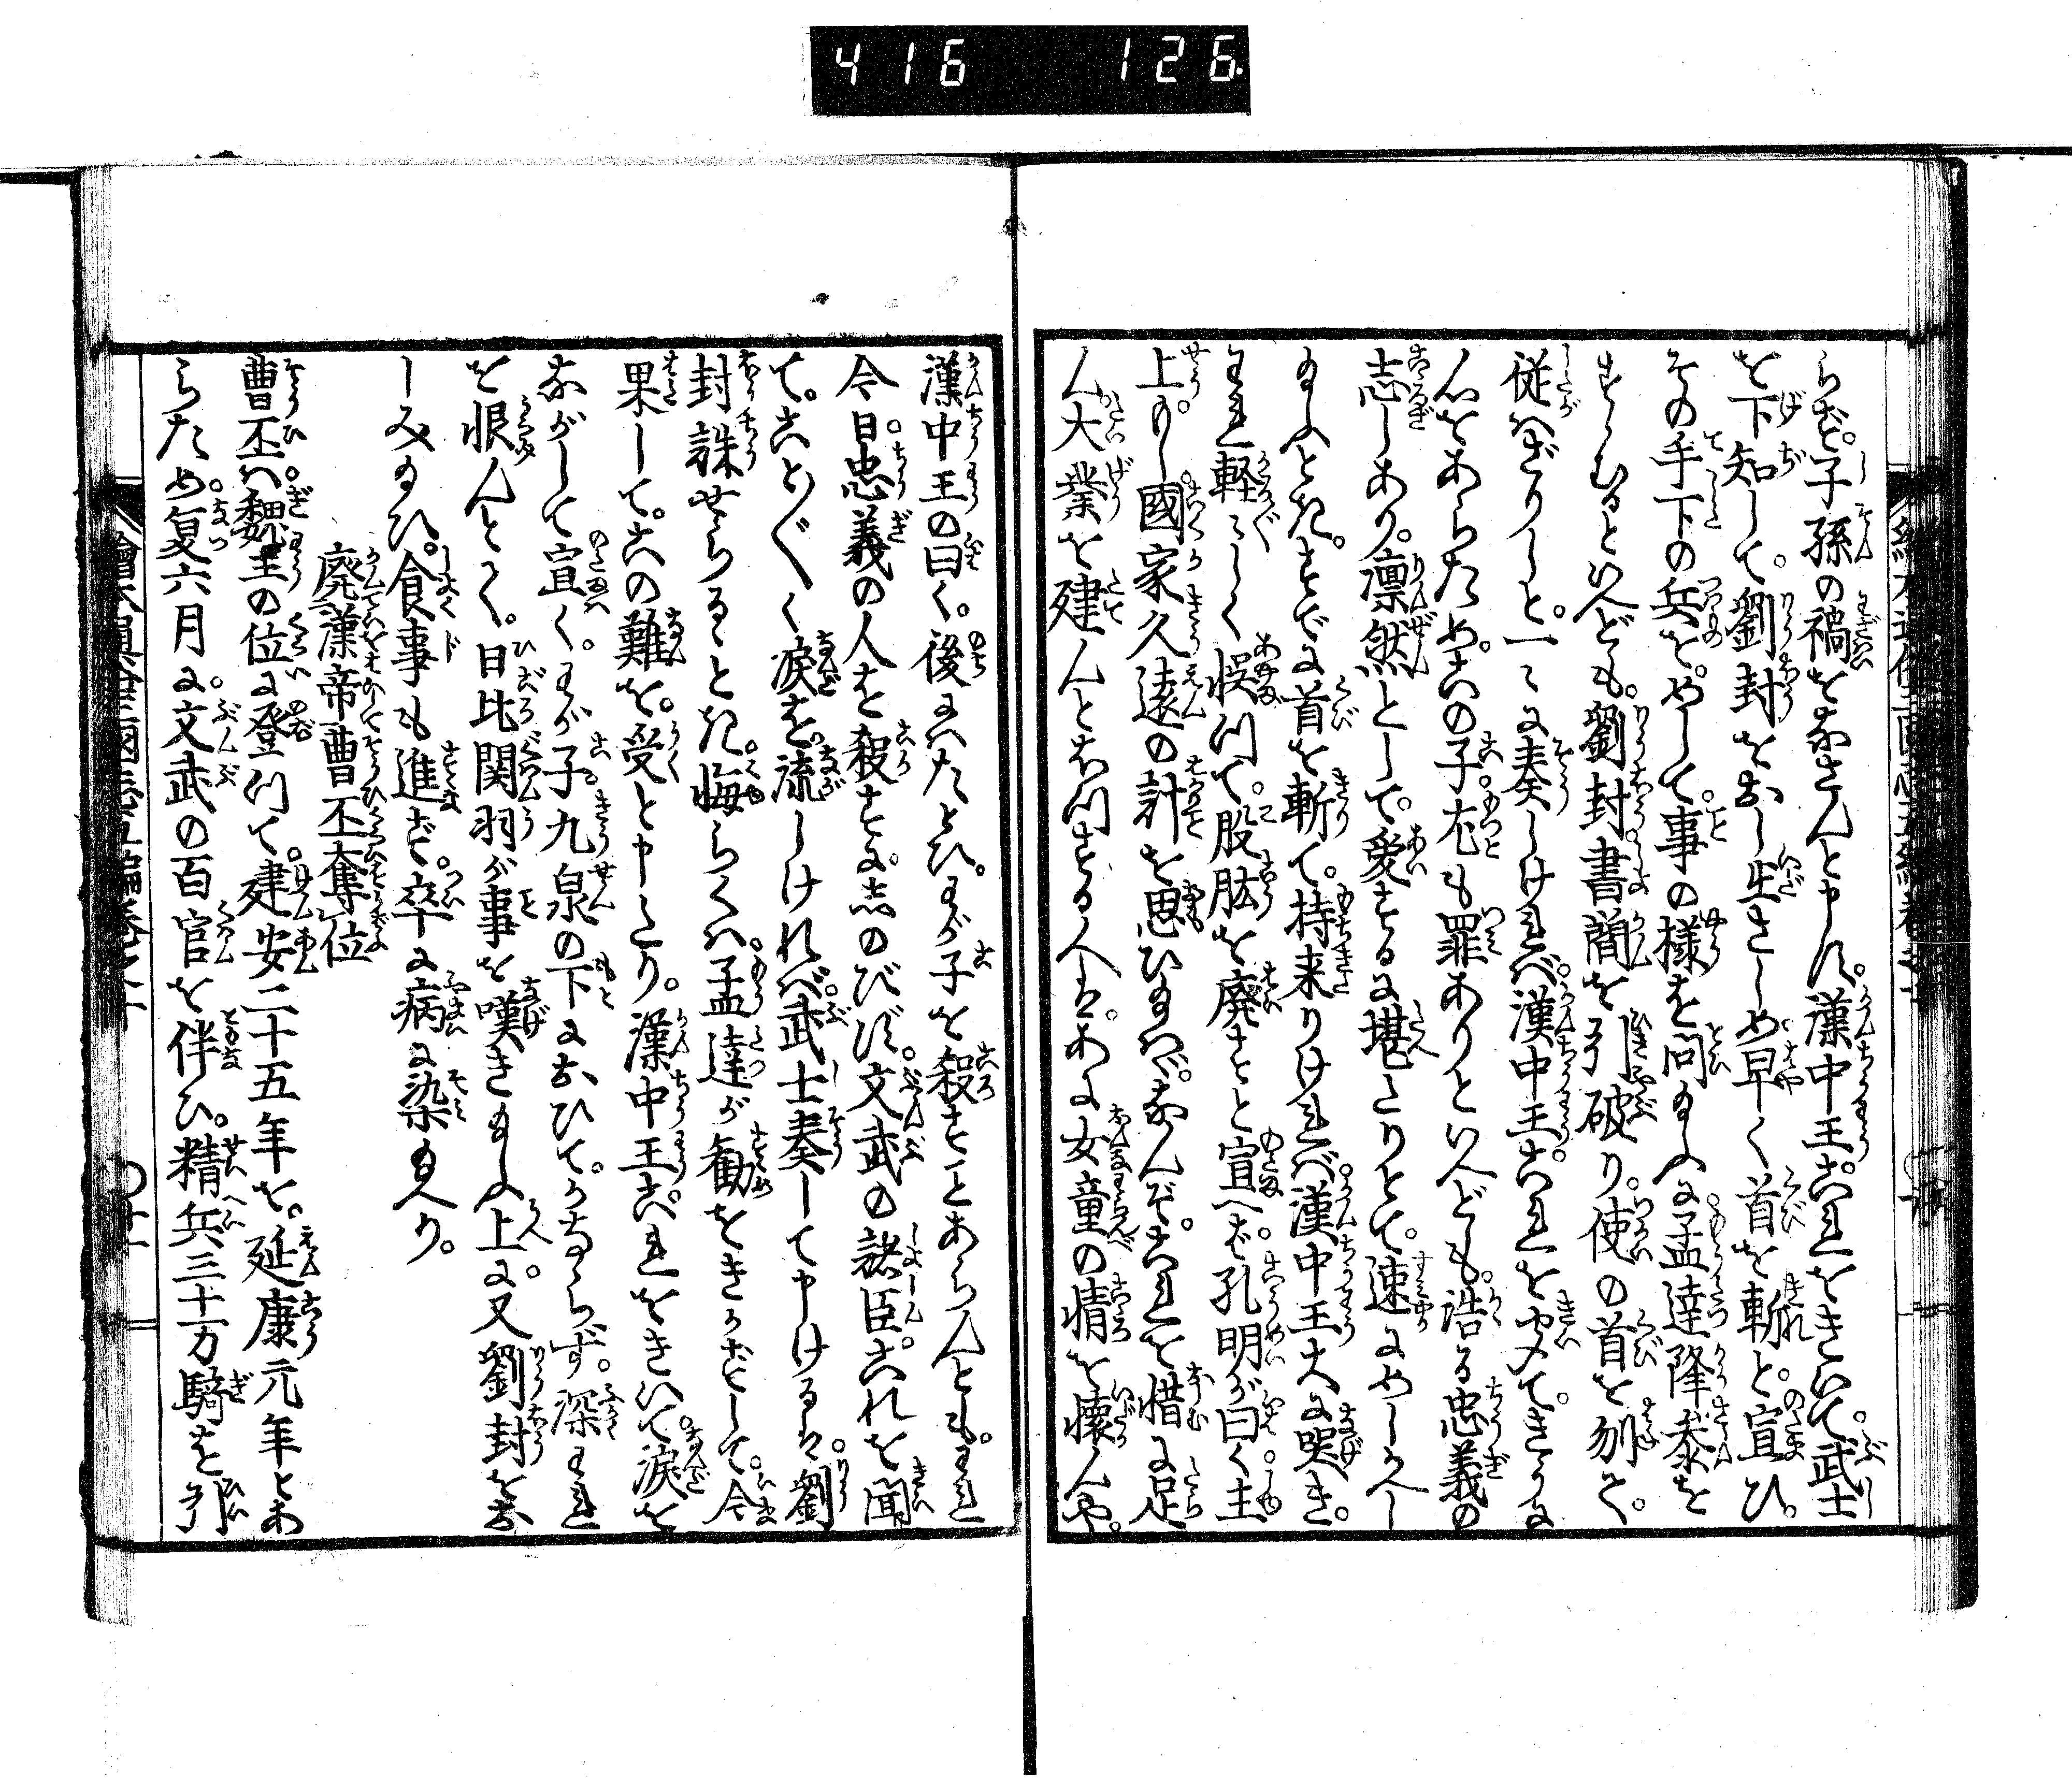 416 126
らず。子孫の禍をなさんと申す。漢中王これをきいて。武士
を下知して。劉封をおし出さしめ。早く首を斬れと。宣ひ。
その手下の兵を。めして。事の様を問給ふに。孟達降参を
すゝむるといへども。劉封書簡を引破り。使の首を刎て。
従はざりしと。一々に奏しければ。漢中王。これをきいて。きうに
心をあらため。この子尤も罪ありといへども。誥る忠義の
志しあり。凛然として。愛するに堪たりとて。速にめしかへし
給ふとき。すでに首を斬て。持来りければ。漢中王大に哭き。
われ軽々しく悞つて。股肱を廃すと宣へば。孔明が曰く主
上。もし國家久遠の計を思ひ給はゞ。なんぞ。これを惜に足
ん。大業を建んと欲する人は。あに女童の情を懐んや。
漢中王の曰く。後にはたとひ。わが子を殺すことあらんとも。われ
今日。忠義の人を殺すに。忍のびず。文武の諸臣。これを聞
て。ことごとく涙を。流しければ。武士奏して申けるは。劉
封誅せらるゝとき。悔らくは。孟達が勧をきかずして。今
果して。この難を。受と申たり。漢中王。これをきいて。涙を
ながして宣く。わが子。九泉の下において。かならず。深くわれ
を恨んとく。日比関羽が事を嘆き給ふ上に。又劉封をお
しみ給ひ。食事も進ず。卒に病に染給へり。
廃漢帝曹丕奪位
曹丕は。魏王の位に登つて。建安二十五年を。延康元年とあ
らため。夏六月に。文武の百官を伴ひ。精兵三十万騎を引